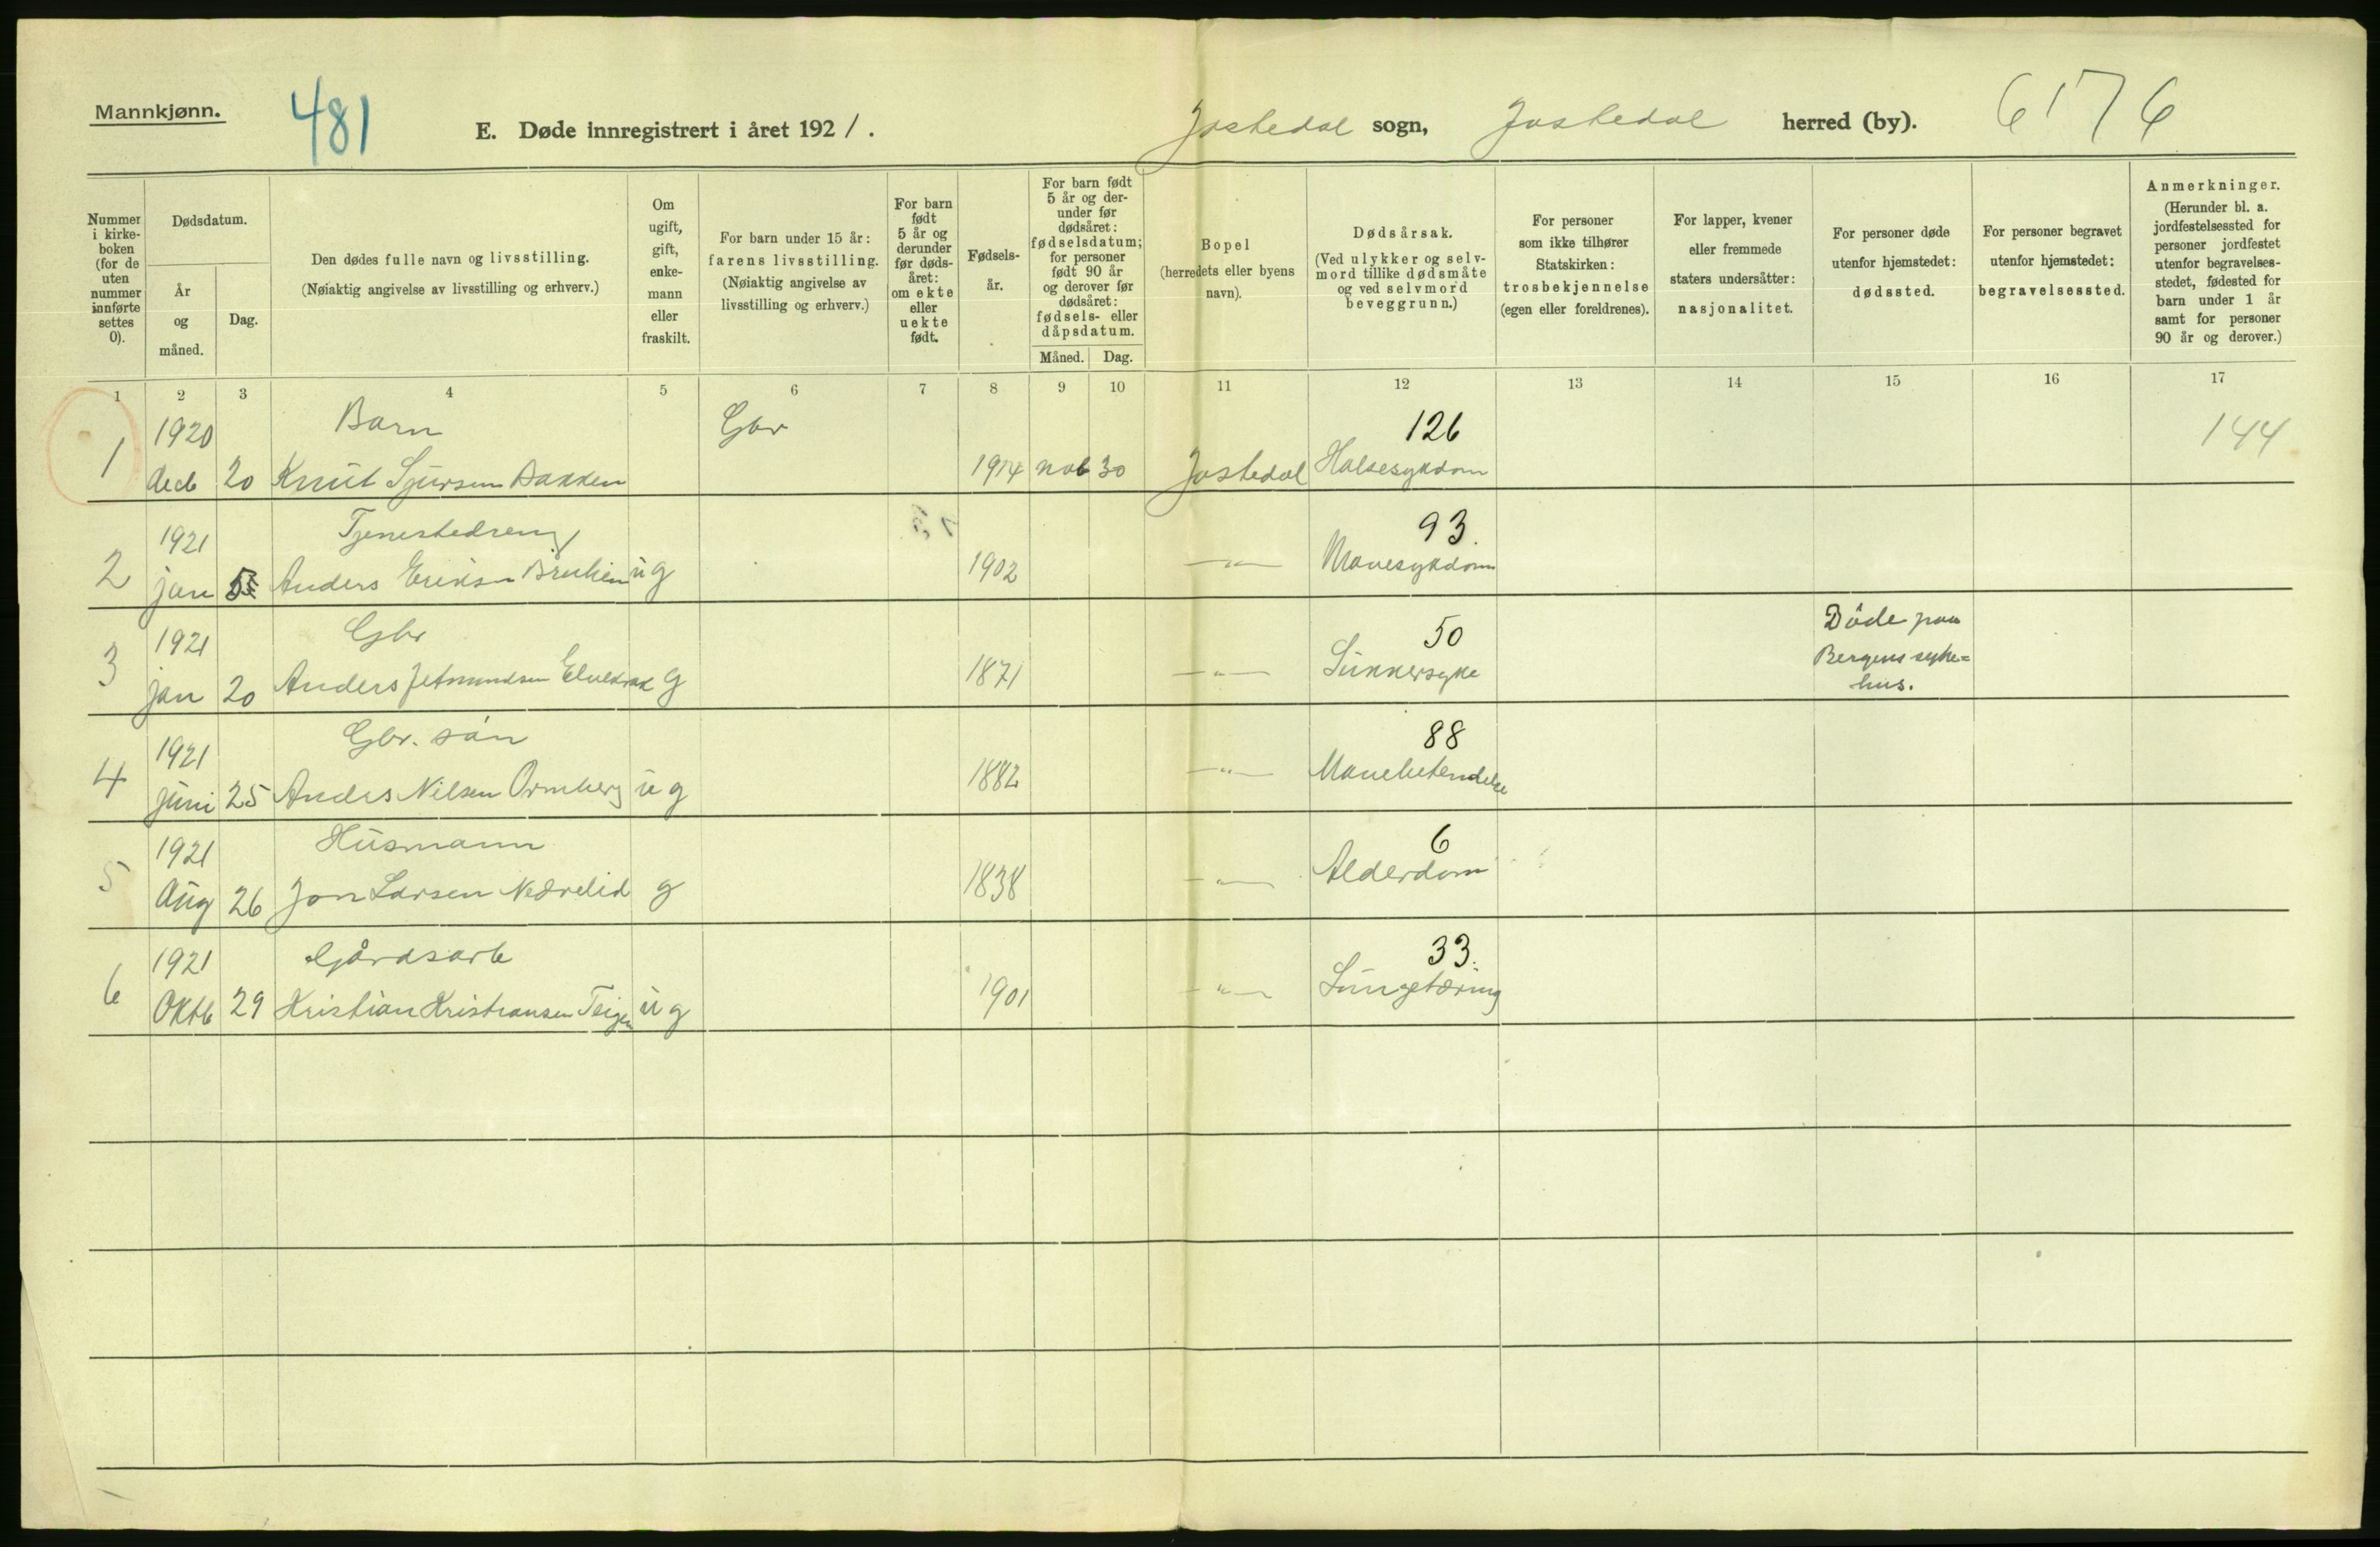 Mannkjønn.
481
E. Døde innregistrert i året 1921.
Jostedal sogn, Jostedal herred (by). 6176
Nummer i kirke-boken (for de uten nummer innførte settes 0).
Dødsdatum.
År og måned.
Dag.
Den dødes fulle navn og livsstilling.
(Nøiaktig angivelse av livsstilling og erhverv.)
Om ugift, gift, enke-mann eller fraskilt.
For barn under 15 år: farens livsstilling.
(Nøiaktig angivelse av livsstilling og erhverv.)
For barn født 5 år og derunder før døds-året: om ekte eller uekte født.
Fødsels-år.
For barn født 5 år og der-under før dødsåret: fødselsdatum; for personer født 90 år og derover før dødsåret: fødsels- eller dåpsdatum.
Måned. Dag.
Bopel (herredets eller byens navn).
Dødsårsak.
(Ved ulykker og selv-mord tillike dødsmåte og ved selvmord beveggrunn.)
For personer som ikke tilhører Statskirken: trosbekjennelse (egen eller foreldrenes).
For lapper, kvener eller fremmede staters undersåtter: nasjonalitet.
For personer døde utenfor hjemstedet: dødssted.
For personer begravet utenfor hjemstedet: begravelsessted.
Anmerkninger.
(Herunder bl. a. jordfestelsessted for personer jordfestet utenfor begravelses-stedet, fødested for barn under 1 år samt for personer 90 år og derover.)
1 2 3 4 5 6 7 8 9 10 11 12 13 14 15 16 17
1920 Barn Gbr 126 144
1 decb 20 Knut Sjursen Bakken 1914 novb 30 Jostedal Halsesykdom
1921 Tjenestedreng 93
2 jan 5 Anders Eriksen ug 1902 —"— Mavesykdom
1921 Gbr 50 Döde paa
3 jan 20 Anders Jetmundsen g 1871 —"— Sukkersyke Bergens syke=
hus.
1921 Gbr. søn 88
4 juni 25 Anders Nilsen Ormberg ug 1882 —"— Mavebetendelse
1921 Husmann 6
5 Aug 26 Jon Larsen Nedrelid g 1838 —"— Alderdom
1921 Gårdsarb 33
6 Oktb 29 Kristian Kristiansen Teigen ug 1901 —"— Lungetæring